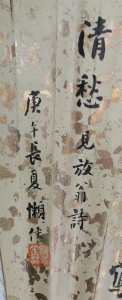 清愁見放翁詩
庚午長夏懶侠